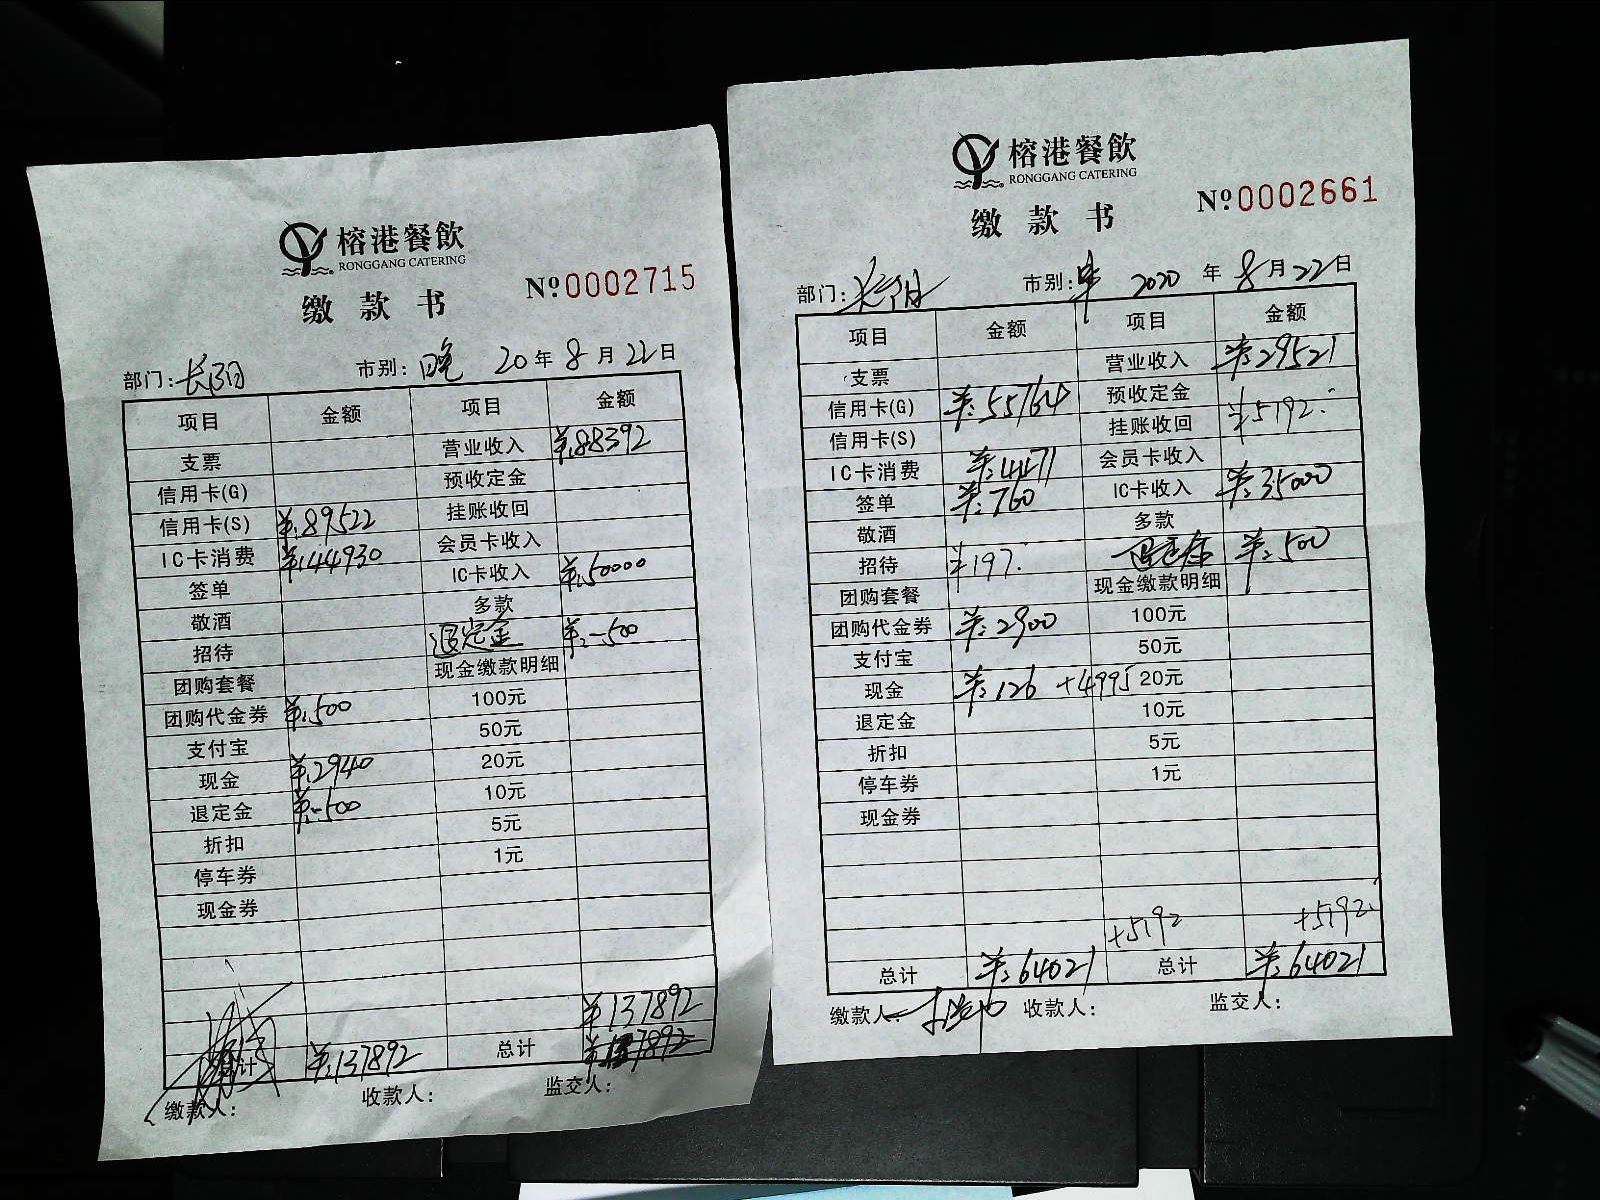 榕港餐飲
RONGGANG CATERING
缴款书
№0002715
部门：长阳 市别：晚 20年8月22日
项目 金额 项目 金额
支票 营业收入 ¥:88392
信用卡(G) 预收定金
信用卡(S) ¥:89522 挂账收回
IC卡消费 ¥:44930 会员卡收入
签单 IC卡收入 ¥:50000
敬酒 多款
招待 退定金 ¥:-500
团购套餐 现金缴款明细
团购代金券 ¥:500 100元
支付宝 50元
现金 ¥:2940 20元
退定金 ¥:-500 10元
折扣 5元
停车券 1元
现金券
¥137892
总计 ¥:137892 总计
缴款人： 收款人： 监交人：
榕港餐飲
RONGGANG CATERING
缴款书
№0002661
部门：长阳 市别： 2020年8月22日
项目 金额 项目 金额
支票 营业收入 ¥:29521
信用卡(G) ¥:55764 预收定金
信用卡(S) 挂账收回 ¥5192.
IC卡消费 ¥:4471 会员卡收入
签单 ¥:760 IC卡收入 ¥:35000
敬酒 多款
招待 ¥197. ¥:500
团购套餐 现金缴款明细
团购代金券 ¥:2900 100元
支付宝 50元
现金 ¥:126 +4995 20元
退定金 10元
折扣 5元
停车券 1元
现金券
+5192 +5192.
总计 ¥:64021 总计 ¥:64021
缴款人： 收款人： 监交人：